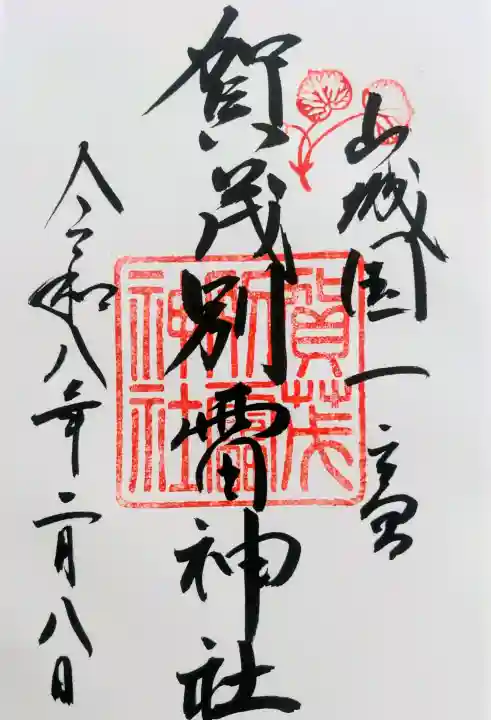 山城国一之宮
賀茂別雷神社
賀茂別雷神社
令和八年二月八日